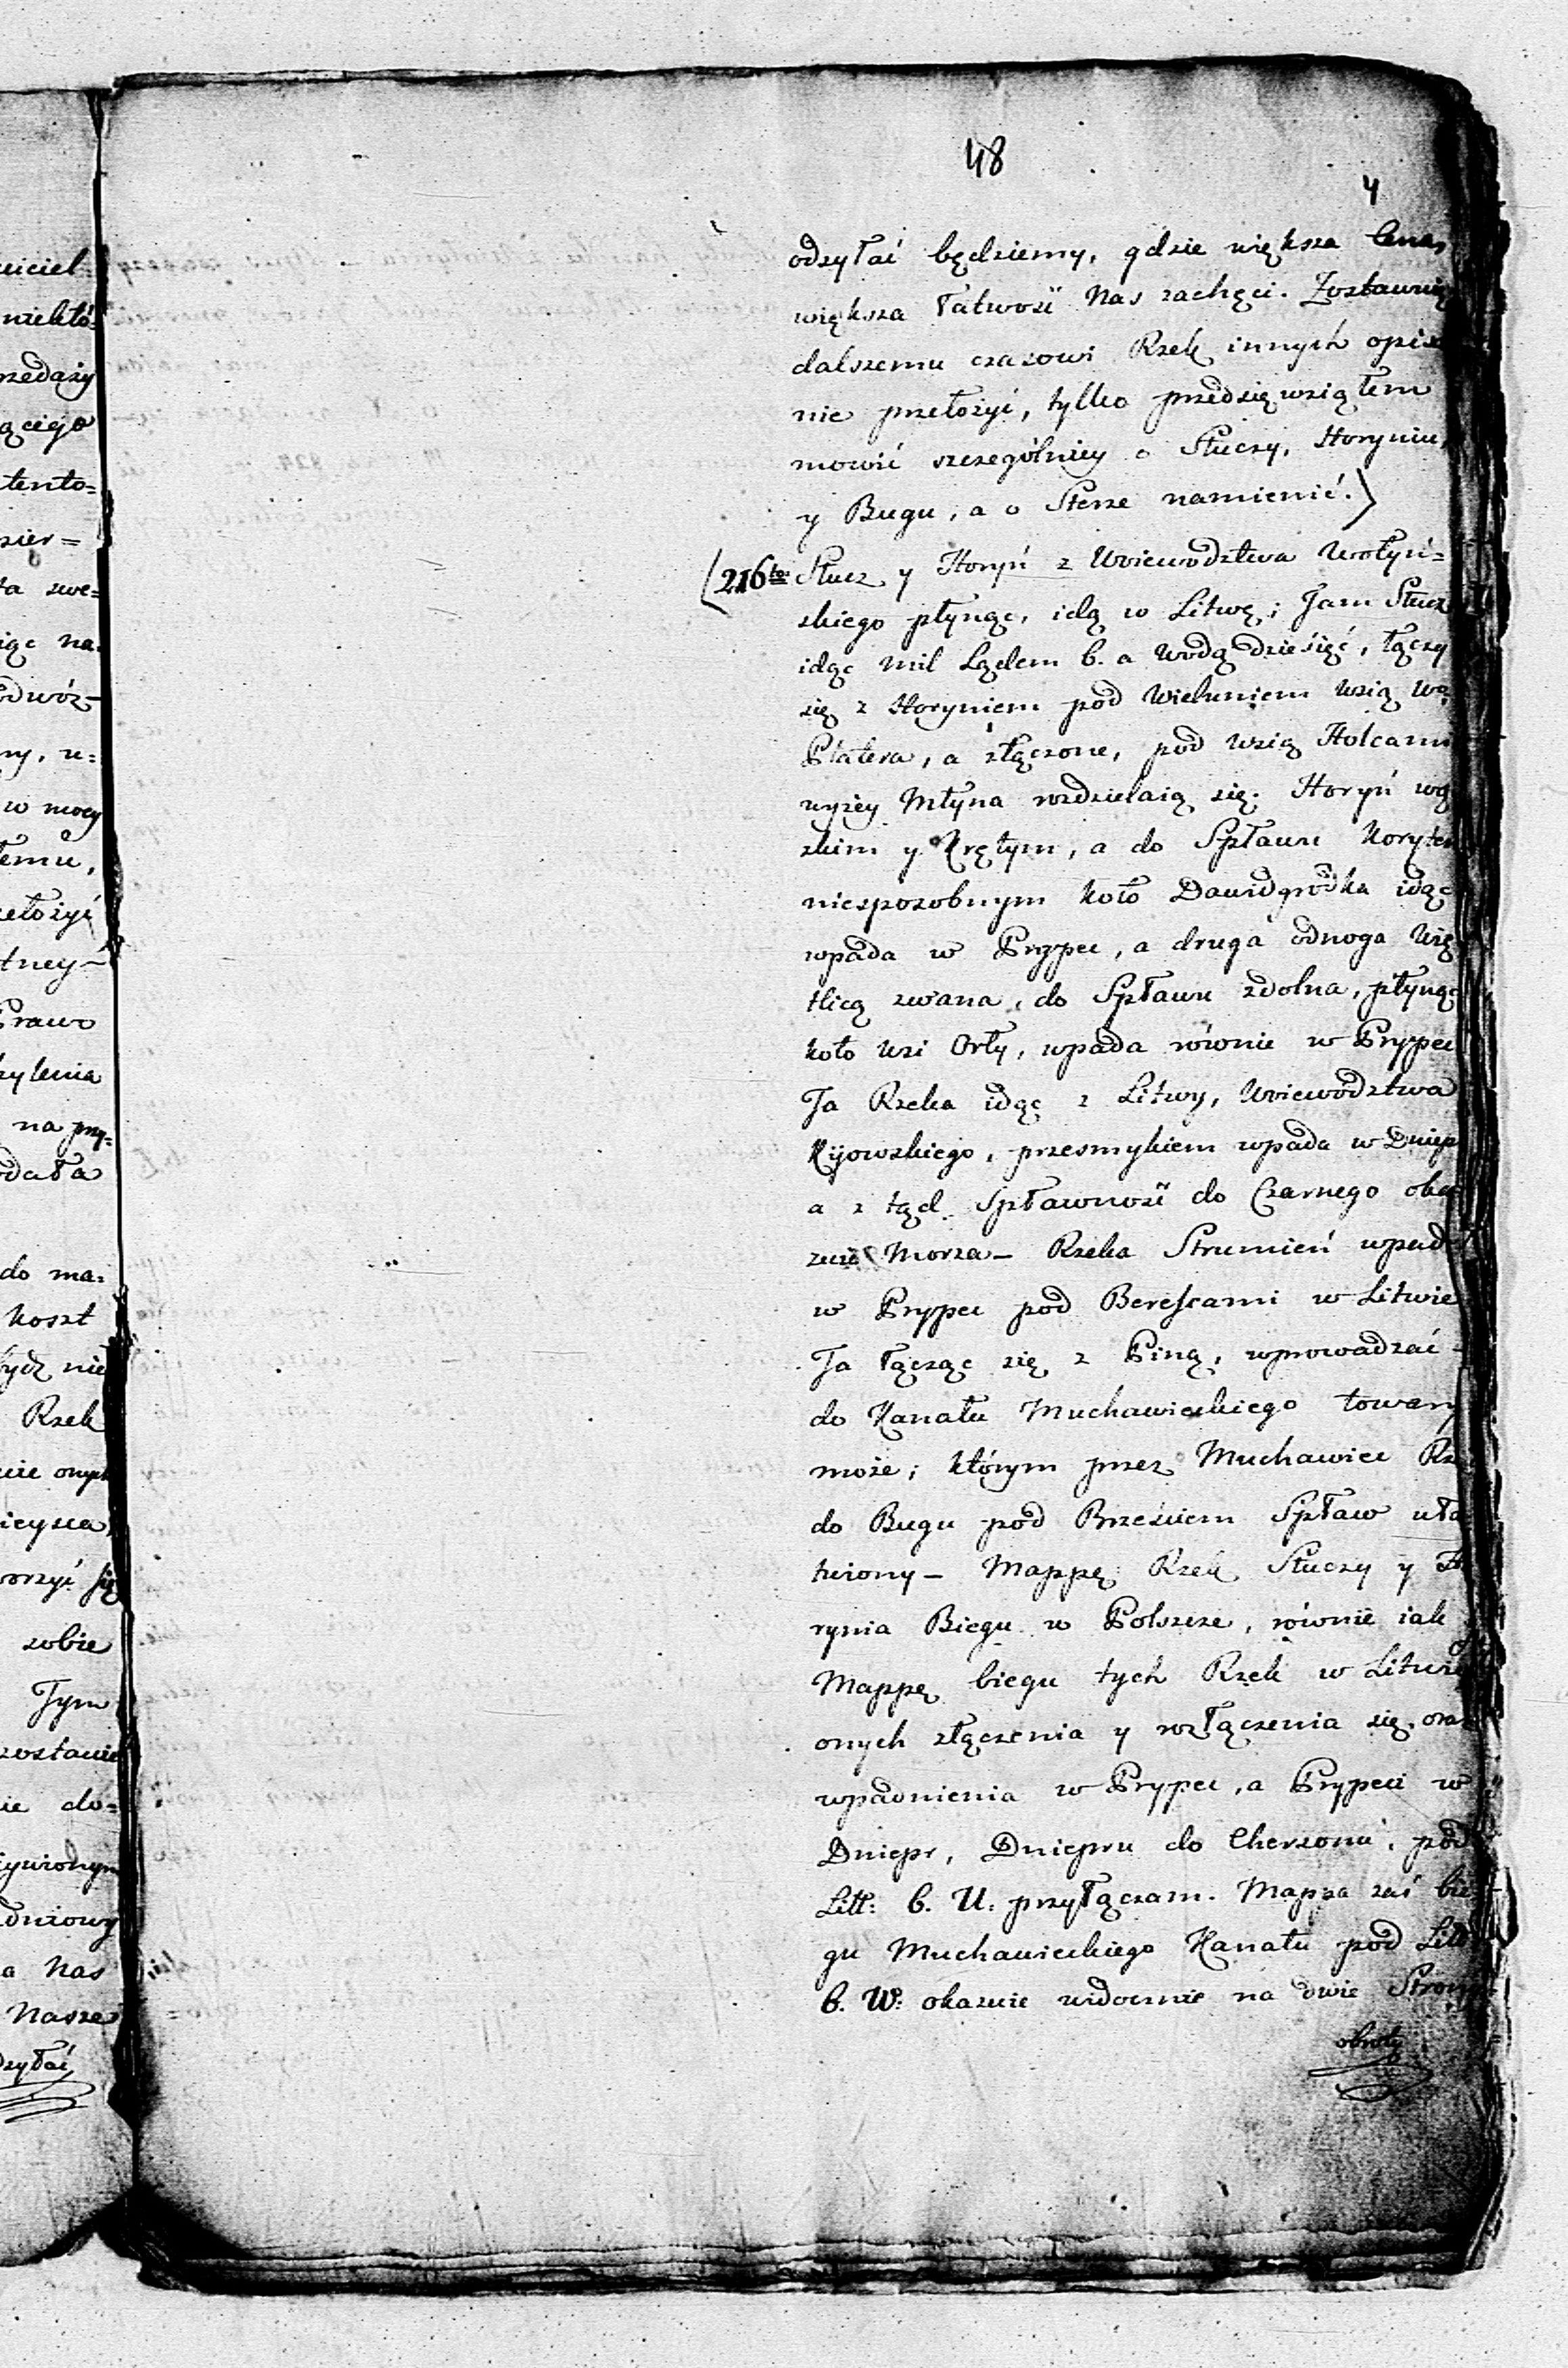 48
4
odsyłać będziemy, gdzie większa Cena,
większa łatwość Nas zachęci. Zostawuię
dalszemu czasowi Rzek innych opisa
nie przełożyć, tylko przedsięwziąłem
mowić szczególniey o Słuczy, Horyniu,
y Bugu, a o Sterze namienić.)
(216to Słucz y Horyń z Woiewodztwa Wołyń=
skiego płynąc, idą w Litwę; Tam Słucz
idąc mil Lądem 6. a Wodą dziesięć, łączy
się z Horyniem pod Wieluniem Wsią
Platera, a złączone, pod Wsią Holcami
wyżey Młyna rozdzielaią się. Horyń
skim y Krętym, a do Spławu Koryte
niesposobnym koło Dawidgródka idąc
wpada w Prypeć, a druga odnoga
tlicą zwana, do Spławu zdolna, płynąc
koło Wsi Orły, wpada równie w Prypeć
Ta Rzeka idąc z Litwy, Woiewodztwa
Kijowskiego, przesmykiem wpada w Dniepr
a z tąd Spławność do Czarnego oka
zuie Morza – Rzeka Strumień wpad
w Prypeć pod Berescami w Litwie
Ta łącząc się z Piną, wprowadzać
do Kanału Muchawieckiego towary
może; którym przez Muchawiec Rz
do Bugu pod Brześciem Spław uła
twiony – Mappę Rzek Słuczy y Ho
rynia Biegu w Polszcze, równie iak
Mappę biegu tych Rzek w Litwie
onych złączenia y rozłączenia się, oraz
wpadnienia w Prypeć, a Prypeci w
Dniepr, Dniepru do Chersonu, pod
Litt: b. U: przyłączam. Mappa zaś bie
gu Muchawieckiego Kanału pod Litt
b. W: okazuie widocznie na dwie Strony
obroty
uiciel
niektó=
rzedaży
ącego
tento=
zier=
ta zwe=
iąc na=
odwóz=
ny, u=
w mocy
temu,
ełożyć
tney
Prawo
żylenia
na przy=
odała
do ma=
Koszt
bydź nie
Rzek
nie onych
ieysca
orzyć się
sobie
Tym
zostawie
ie do=
ywionym
dniowy
a Nas
Nasze
dsyłać